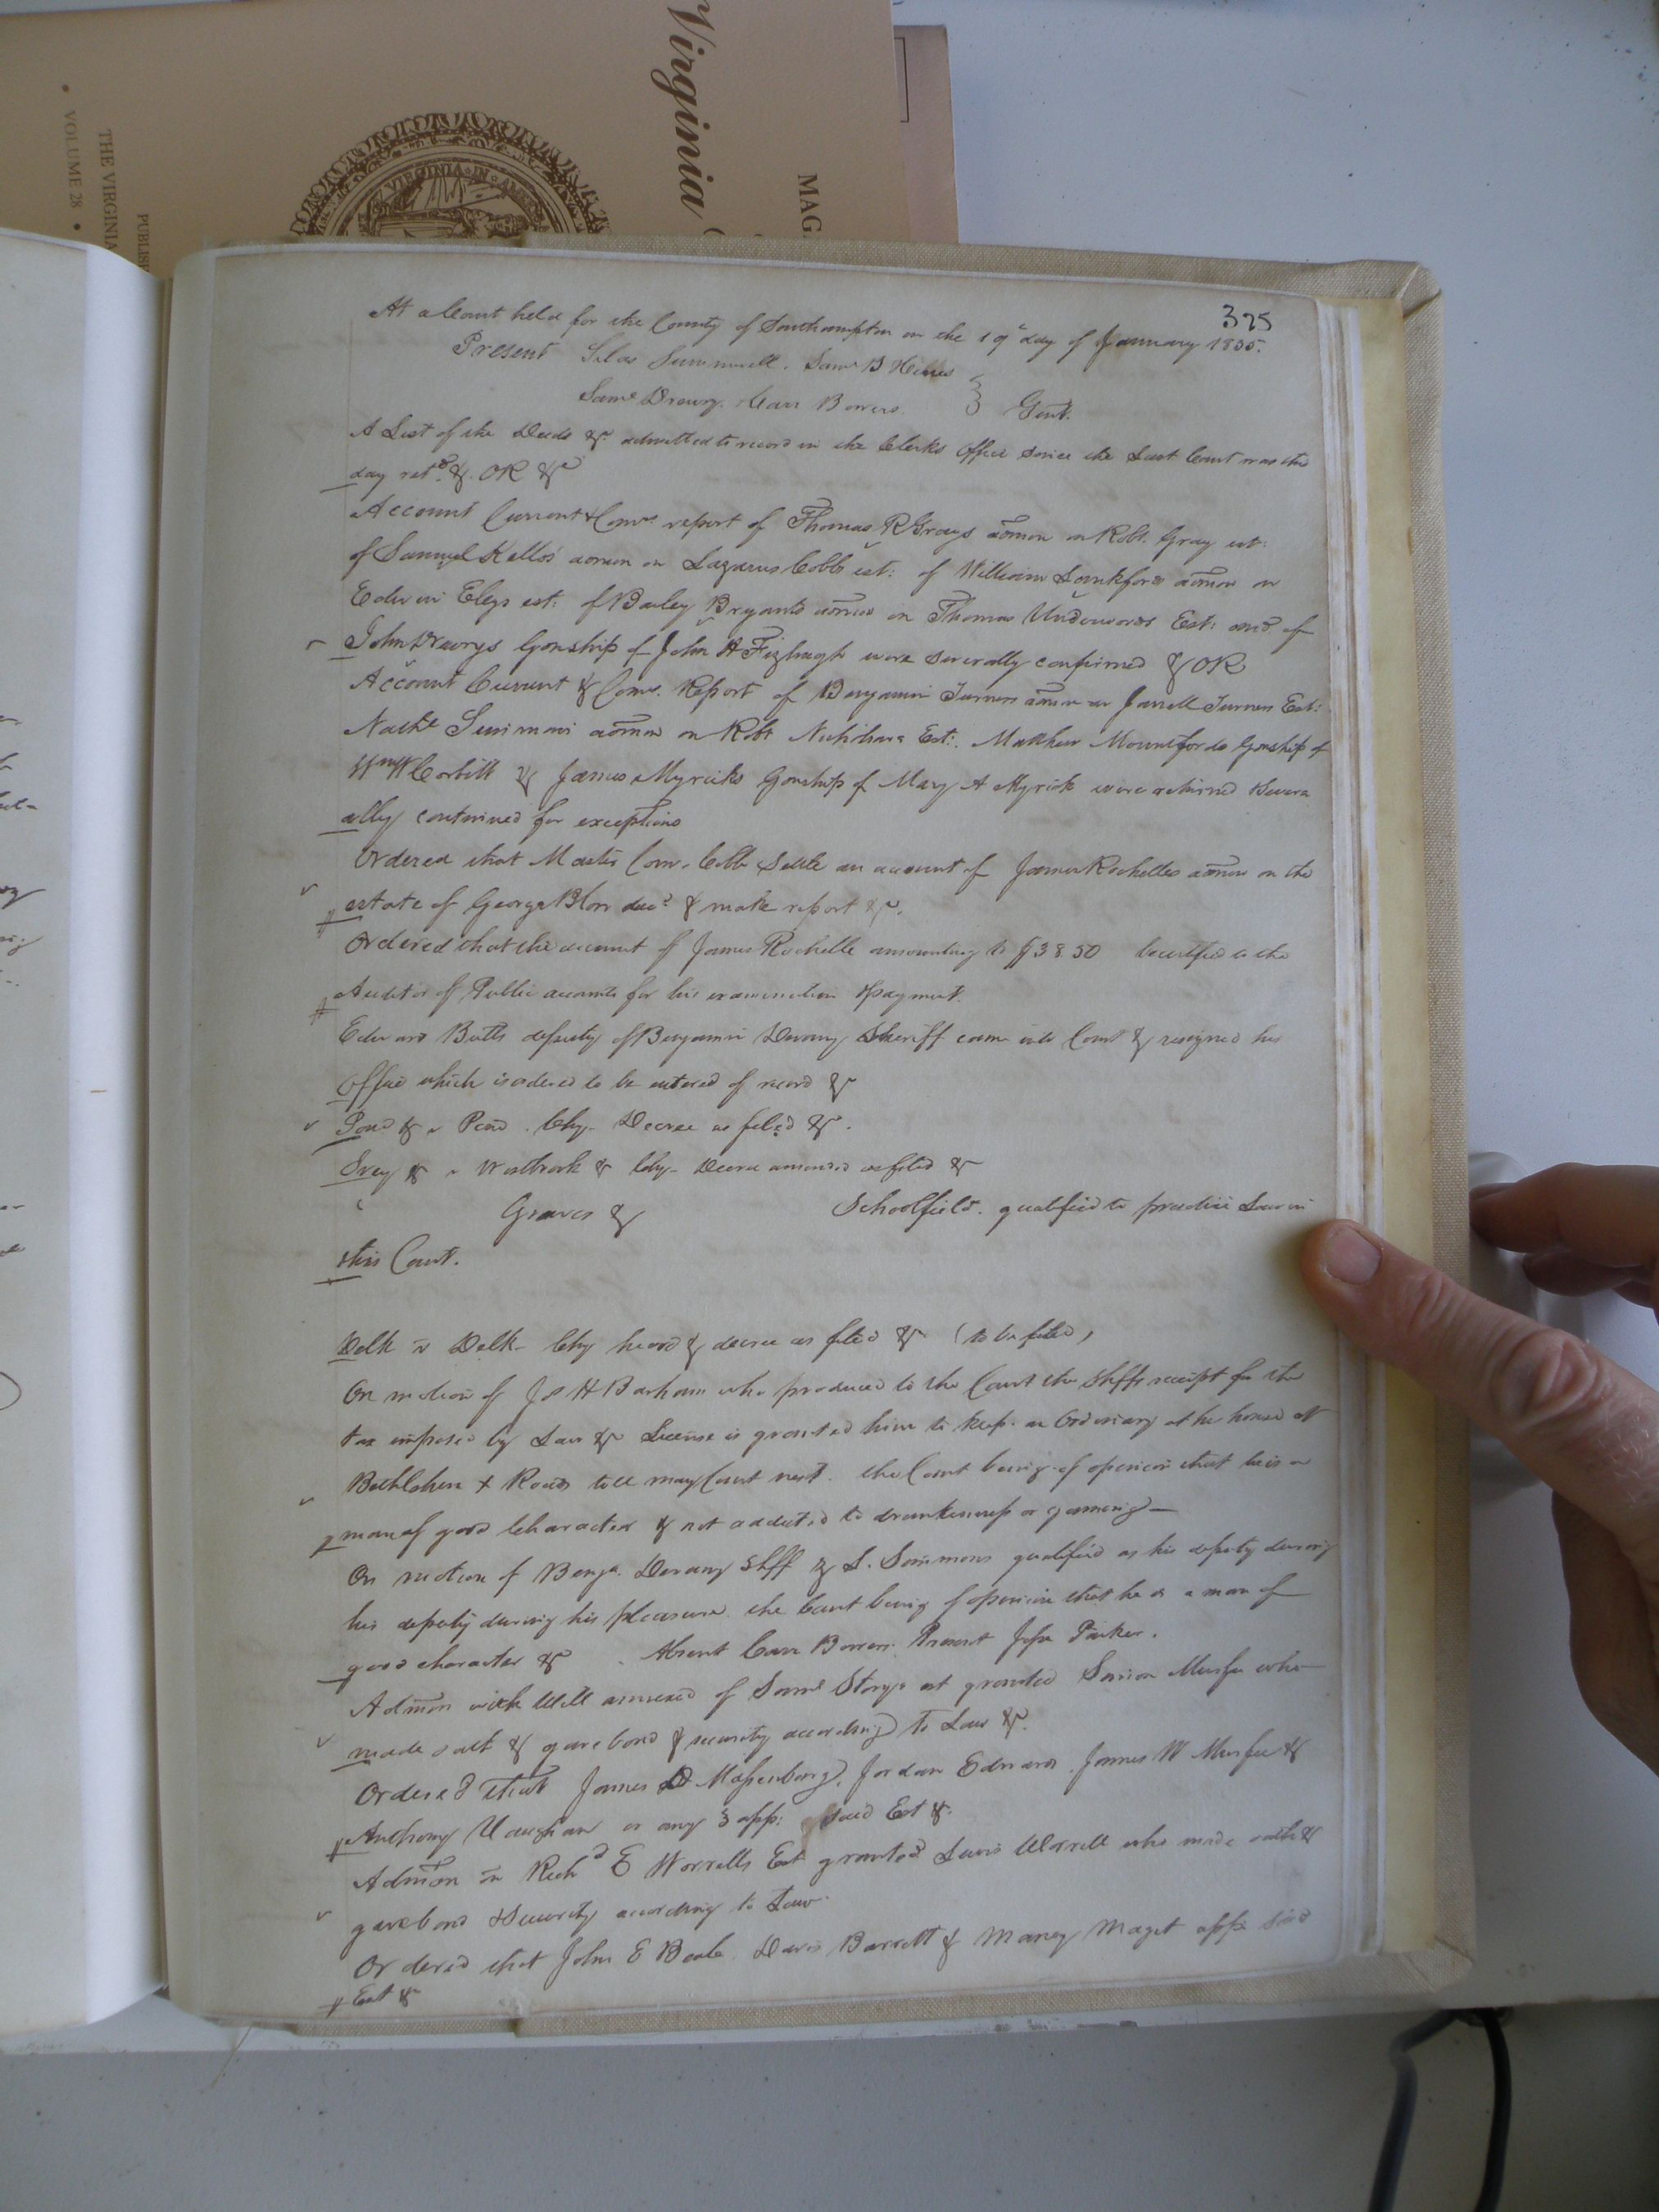 Virginia
MAG
THE VIRGINIA
VOLUME 28
PUBLISH
VIRGINIA IN
325
At a Court held for the County of Southampton on the 19th day of January 1835.
Present Silas Summerell. Saml B Hines
Saml Drewry. Carr Bowers. Gent.
A List of the Deeds &c admitted to record in the Clerks Office since the Last Court was this
day retd &. OR &c
Account Current & Comrs report of Thomas R Grays admon on Robt. Gray est:
of Samuel Kellos admon on Lazarus Cobbs est: of William Lankfords admon on
Edwin Eleys est: of Barley Bryants admon on Thomas Underwoods Est: and of
John Drewrys Gonship of John H Fizhugh were severally confirmed & OR
Account Current & Comr. Report of Benjamin Turners admon on Jarrell Turners Est:
Nathl Simmons admon on Robt Est:. Matthew Mountfords Gonship of
Wm W Corbitt & James Myricks Gonship of Mary A Myrick were returned Severa
ally continued for exceptions
Ordered that Master Comr. Cobb Settle an account of James Rochelles admon on the
estate of George Blow decd & make report &c.
Ordered that the account of James Rochelle amounting to $38.50 be certified to the
Auditor of Public accounts for his examination & payment.
Edward Butts deputy of Benjamin Devany Sheriff came into Court & resigned his
Office which is ordered to be entered of record &c
Pond &c v Pond. Chy. Decree as filed &c.
Ivey &c v Westbrook &c Chy- Decree amended as filed &c
Graves & Schoolfield. qualified to practice Law in
this Court.
Delk v Delk- Chy heard & decree as filed &c (to be filed)
On motion of Js H Barham who produced to the Court the Shffs receipt for the
tax imposed by Law &c License is granted him to keep an Ordinary at his house at
Bethlehem X Roads till may Court next. the Court being of opinion that he is a
man of good Character & not addicted to drunkenness or gaming—
On motion of Benja. Devany Shff & S. Simmons qualified as his deputy during
his deputy during his pleasure. the Court being of opinion that he is a man of
good character &c. Absent Carr Bowers. Present Jesse Parker.
Admon with Will annexed of Saml Storys est granted Simon Murfee who
made oath & gave bond & security according to Law &c.
Ordered that James D Massenburg, Jordan Edwards. James W Murfee &
Anthony Vaughan or any 3 app: said Est &c.
Admon on Richd E Worrells Est granted Lewis Worrell who made oath &
gave bond & Security according to Law.
Ordered that John E Beale. Davis Barrett & Maney Maget appr. said
Est &c